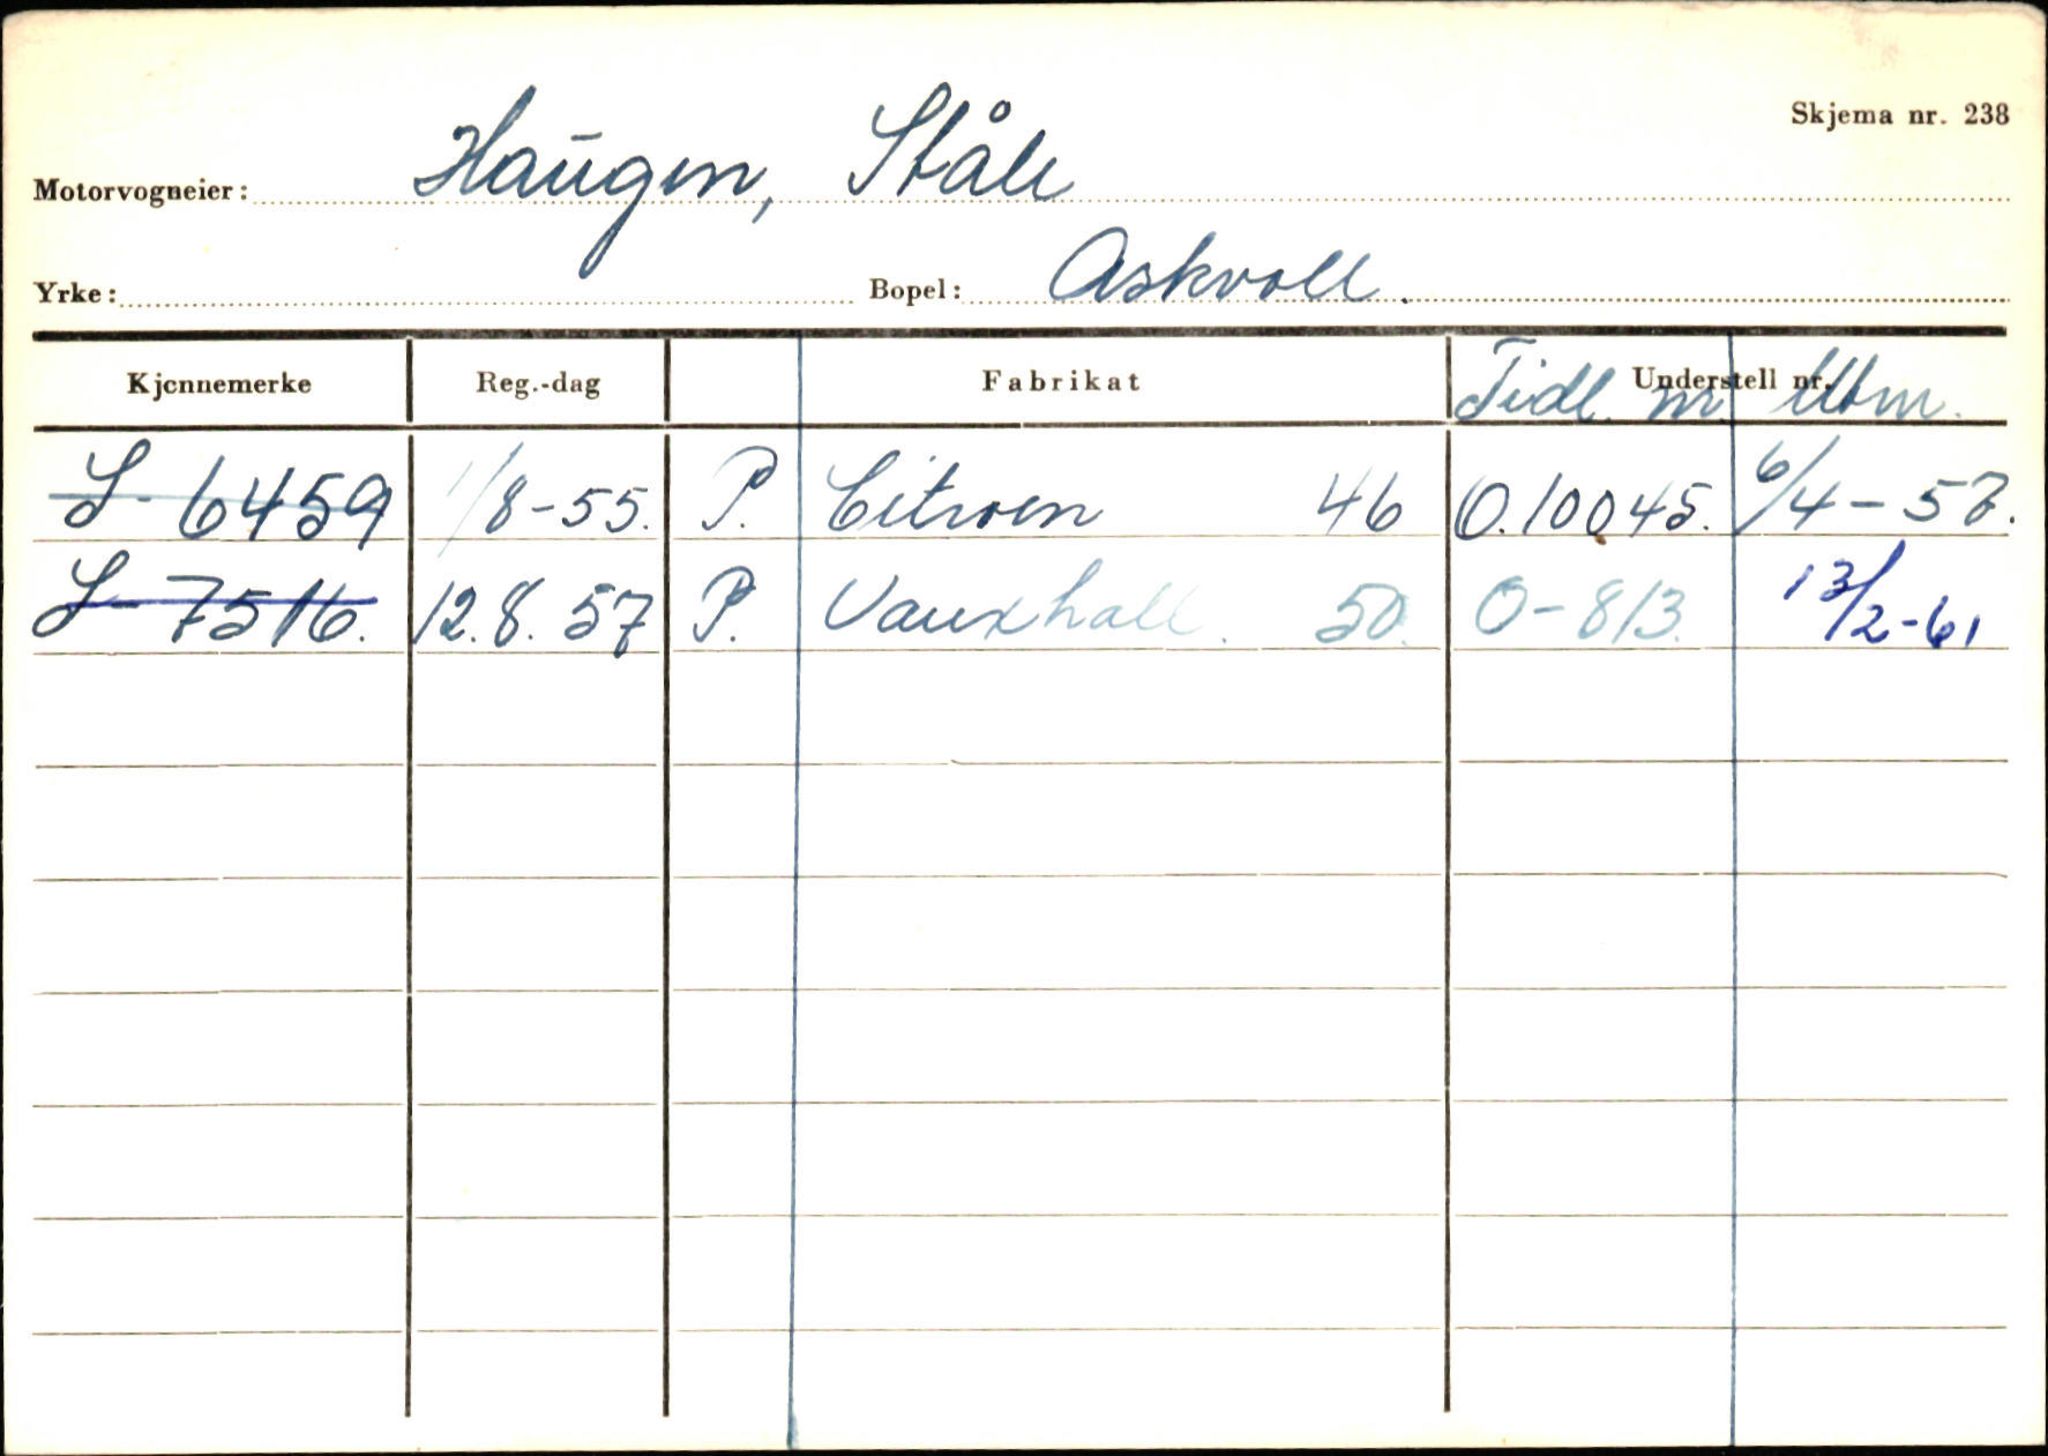 Skjema nr. 238
Motorvogneier: Haugen, Ståle
Yrke: Bopel: Askvoll.
Kjennemerke Reg.-dag Fabrikat Understell nr.
Tidl. nr. Utm.
S-6459 1/8-55. P. Citroen 46 O.10045. 6/4-57.
S-7516. 12.8.57 P. Vauxhall. 50. O-813. 13/2-61